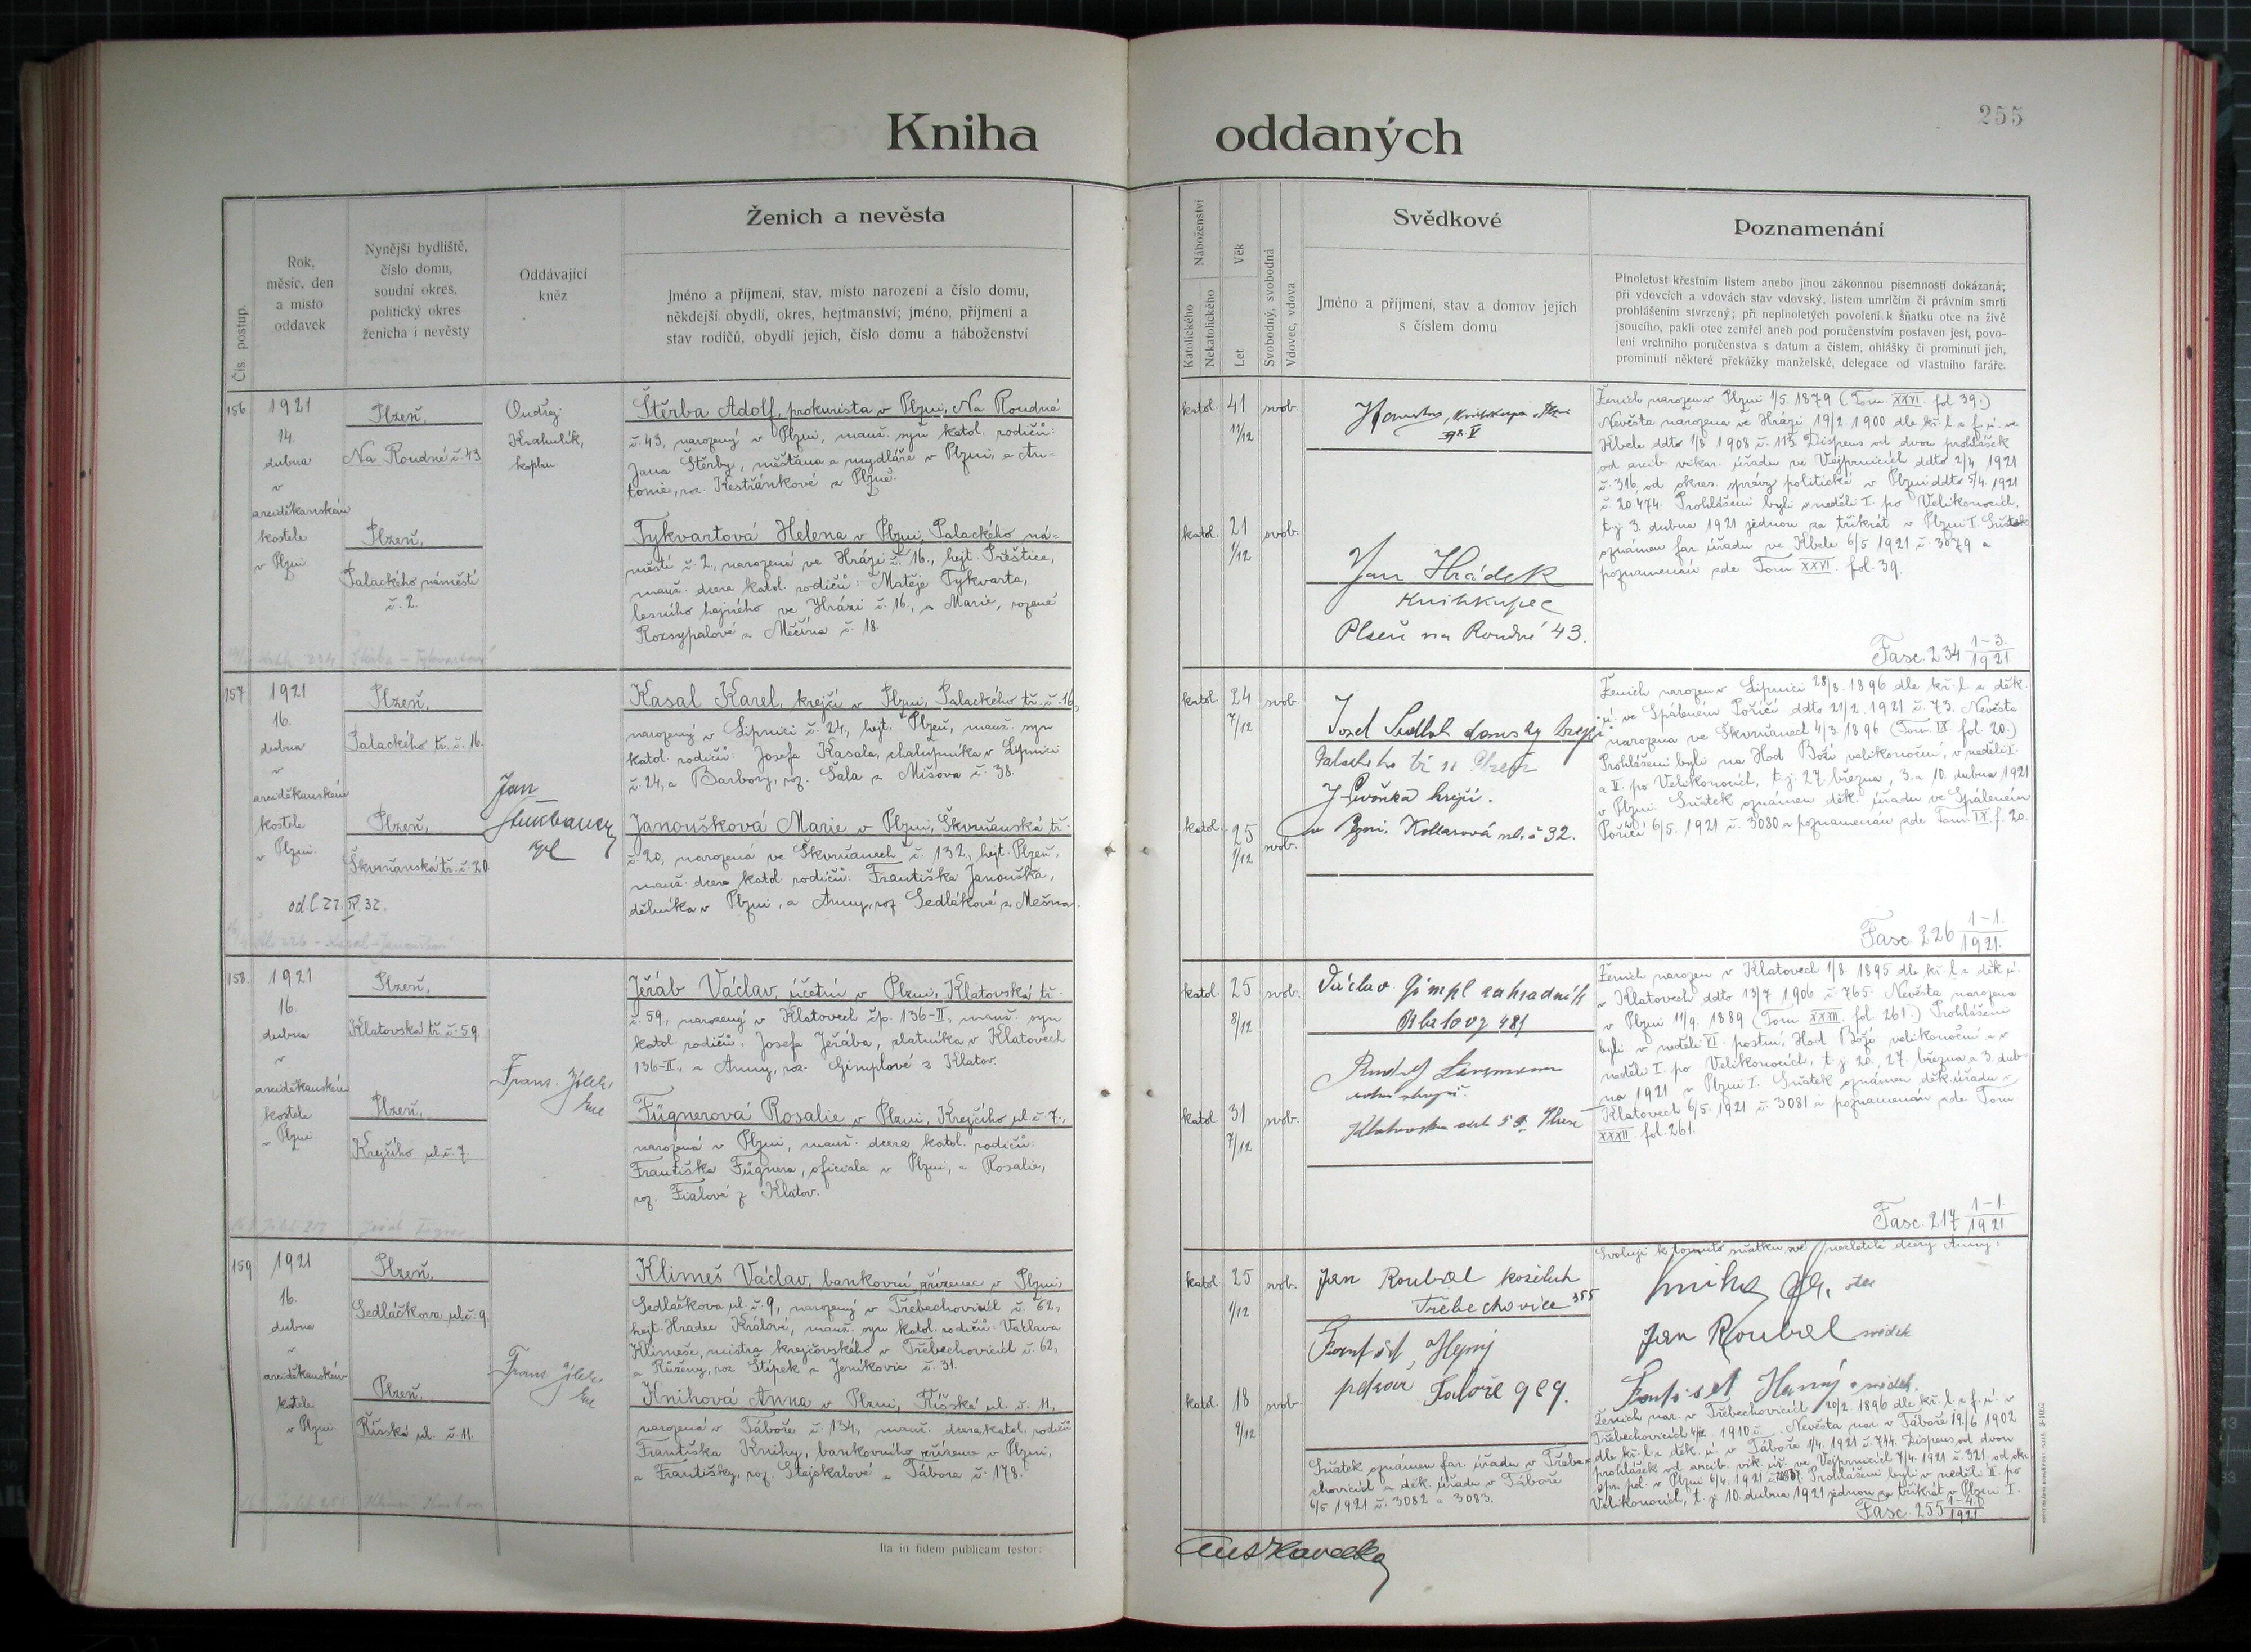 255
Kniha oddaných
Čís. postup.
Rok,
měsíc, den
a místo
oddavek
Nynější bydliště,
číslo domu,
soudní okres,
politický okres
ženicha i nevěsty
Oddávající
kněz
Ženich a nevěsta
Jméno a příjmení, stav, místo narození a číslo domu,
někdejší obydlí, okres, hejtmanství; jméno, příjmení a
stav rodičů, obydlí jejich, číslo domu a náboženství
Náboženství
Katolického
Nekatolického
Věk
Let
Svobodný, svobodná
Vdovec, vdova
Svědkové
Jméno a příjmení, stav a domov jejich
s číslem domu
Poznamenání
Plnoletost křestním listem anebo jinou zákonnou písemností dokázaná;
při vdovcích a vdovách stav vdovský, listem umrlčím či právním smrti
prohlášením stvrzený; při neplnoletých povolení k sňatku otce na živě
jsoucího, pakli otec zemřel aneb pod poručenstvím postaven jest, povo-
lení vrchního poručenstva s datum a číslem, ohlášky či prominutí jich,
prominutí některé překážky manželské, delegace od vlastního faráře.
156
1921
14.
dubna
v
arciděkanském
kostele
v Plzni
Plzeň,
Na Roudné č. 43
Plzeň,
Palackého náměstí
č. 2.
Ondřej
Krahulík,
kaplan
Štěrba Adolf, prokurista v Plzni, Na Roudné
č. 43, narozený v Plzni, manž. syn katol. rodičů:
Jana Štěrby, měšťana a mydláře v Plzni, a An-
tonie, roz. Kestřánkové z Plzně.
Tykvartová Helena v Plzni, Palackého ná-
městí č. 2, narozená ve Hrázi č. 16., hejt. Přeštice,
manž. dcera katol. rodičů: Matěje Tykvarta,
lesního hajného ve Hrázi č. 16., a Marie, rozené
Rozsypalové z Měčína č. 18.
katol. 41 svob.
11/12
katol. 21 svob.
1/12
Jan Hrádek
Knihkupec
Plzeň na Roudné 43.
Ženich narozen v Plzni 1/5. 1879 (Tom. XXVI. fol. 39.)
Nevěsta narozena ve Hrázi 19/2. 1900 dle kř. l. z f. ú. ve
Kbele ddto 1/8 1908 č. 113. Dispens od dvou prohlášek
od arcib. vikar. úřadu ve Vejprnicích ddto 2/4 1921
č. 316, od okres. správy politické v Plzni ddto 5/4. 1921
č. 20.474. Prohlášeni byli v neděli I. po Velikonocích,
t. j. 3. dubna 1921 jednou za třikrát v Plzni I. Sňatek
oznámen far. úřadu ve Kbele 6/5 1921 č. 3079 a
poznamenán zde Tom. XXVI. fol. 39.
Fasc. 234 1-3./1921.
157
1921
16.
dubna
v
arciděkanském
kostele
v Plzni.
Plzeň,
Palackého tř. č. 16.
Plzeň,
Škvrňanská tř. č. 20.
Jan
Kasal Karel, krejčí v Plzni, Palackého tř. č. 16,
narozený v Lipnici č. 24, hejt. Plzeň, manž. syn
katol. rodičů: Josefa Kasala, chalupníka v Lipnici
č. 24, a Barbory, roz. Šala z Míšova č. 38.
Janoušková Marie v Plzni, Škvrňanská tř.
č. 20, narozená ve Škvrňanech č. 132., hejt. Plzeň,
manž. dcera katol. rodičů: Františka Janouška,
dělníka v Plzni, a Anny, roz. Sedlákové z Mečína.
katol. 24 svob.
7/12
katol. 25 svob.
1/12
v Plzni, Kollarová ul. č 32.
Ženich narozen v Lipnici 28/8. 1896 dle kř. l. z děk.
ú. ve Spáleném Poříčí ddto 21/2. 1921 č. 73. Nevěsta
narozena ve Škvrňanech 4/3. 1896 (Tom. IX. fol. 20.)
Prohlášeni byli na Hod Boží velikonoční, v neděli I.
a II. po Velikonocích, t. j. 27. března, 3. a 10. dubna 1921
v Plzni. Sňatek oznámen děk. úřadu ve Spáleném
Poříčí 6/5. 1921 č. 3080 a poznamenán zde Tom. IX. f. 20.
Fasc. 226 1-1./1921.
158.
1921
16.
dubna
v
arciděkanském
kostele
v Plzni
Plzeň,
Klatovská tř. č. 59.
Plzeň,
Krejčího ul. č. 7.
Jeřáb Václav, účetní v Plzni, Klatovská tř.
č. 59, narozený v Klatovech čp. 136-II., manž. syn
katol. rodičů: Josefa Jeřába, zlatníka v Klatovech
136-II., a Anny, roz. Gimplové z Klatov.
Fügnerová Rosalie v Plzni, Krejčího ul. č. 7.,
narozená v Plzni, manž. dcera katol. rodičů:
Františka Fügnera, oficiala v Plzni, a Rosalie,
roz. Fialové z Klatov.
katol. 25 svob.
8/12
katol. 31 svob.
7/12
Václav Gimpl zahradník
Klatovy 481
Ženich narozen v Klatovech 1/8. 1895 dle kř. l. z děk. ú.
v Klatovech ddto 13/7 1906 č. 765. Nevěsta narozena
v Plzni 11/9. 1889 (Tom. XXXII. fol. 261.) Prohlášeni
byli v neděli VI. postní, Hod Boží velikonoční a v
neděli I. po Velikonocích, t. j. 20. 27. března a 3. dub-
na 1921 v Plzni I. Sňatek oznámen děk. úřadu v
Klatovech 6/5. 1921 č. 3081 a poznamenán zde Tom.
XXXII. fol. 261.
Fasc. 217 1-1./1921.
159
1921
16.
dubna
v
arciděkanském
kostele
v Plzni
Plzeň,
Sedláčkova ul. č. 9.
Plzeň,
Říšská ul. č. 11.
Klimeš Václav, bankovní zřízenec v Plzni,
Sedláčkova ul. č. 9, narozený v Třebechovicích č. 62,
hejt. Hradec Králové, manž. syn katol. rodičů: Václava
Klimeše, mistra krejčovského v Třebechovicích č. 62,
a Růženy, roz. Štípek z Jeníkovic č. 31.
Knihová Anna v Plzni, Říšská ul. č. 11,
narozená v Táboře č. 134, manž. dcera katol. rodičů
Františka Knihy, bankovního zřízence v Plzni,
a Františky, roz. Stejskalové z Tábora č. 178.
katol. 25 svob.
1/12
katol. 18 svob.
9/12
Jan Roubal koželuh
Třebechovice 355
Sňatek oznámen far. úřadu v Třebe-
chovicích a děk. úřadu v Táboře
6/5 1921 č. 3082 a 3083.
Svoluji k tomuto sňatku své nezletilé dcery Anny:
Jan Roubal svědek
Ženich nar. v Třebechovicích 20/2. 1896 dle kř. l. z f. ú. v
Třebechovicích 1910 č. Nevěsta nar. v Táboře 19/6 1902
dle kř. l. z děk. ú. v Táboře 1/4. 1921 č. 744. Dispens od dvou
prohlášek od arcib. vik. úř. ve Vejprnicích 7/4. 1921 č. 321. od okr.
Prohlášeni byli v neděli II. po
Velikonocích, t. j. 10. dubna 1921 jednou za třikrát v Plzni I.
Fasc. 255 1-4./1921.
Ita in fidem publicam testor: